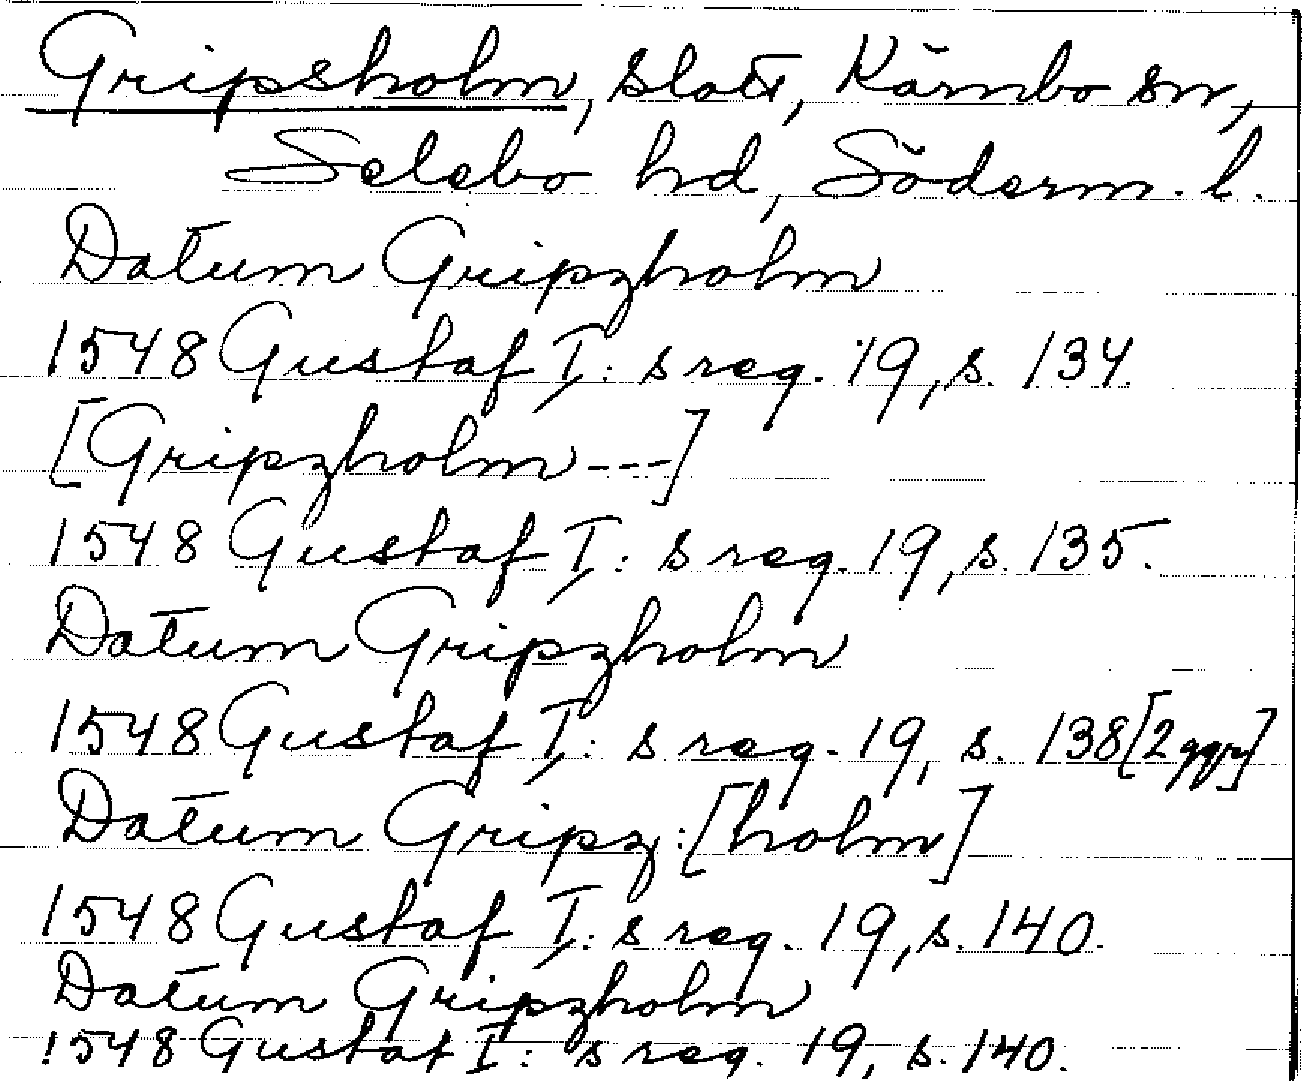 Gripsholm, slott, Kärnbo sn,
Selebo hd, Söderm. l.
Datum Gripzholm
1548 Gustaf I: s reg. 19, s. 134.
[Gripzholm ---]
1548 Gustaf I: s reg. 19, s. 135.
Datum Gripzholm
1548 Gustaf I: s reg. 19, s. 138 [2 ggr]
Datum Gripz:[holm]
1548 Gustaf I: s reg. 19, s. 140.
Datum Gripzholm
1548 Gustaf I: s reg. 19, s. 140.